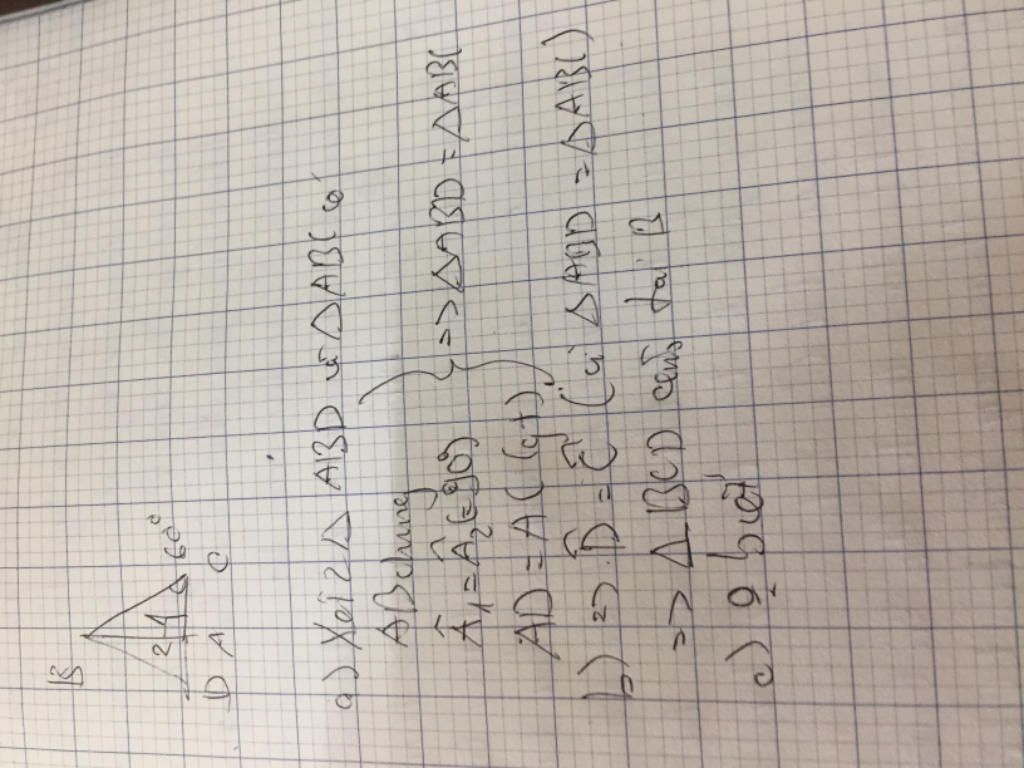 B
2 1 60°
D A C
a) Xét 2 Δ ABD và Δ ABC có
AB chung
Â1 = Â2 (= 90°)
AD = AC (gt)
} => Δ ABD = Δ ABC
b) => D̂ = Ĉ (vì Δ ABD = Δ ABC)
=> Δ BCD cân tại B
c)